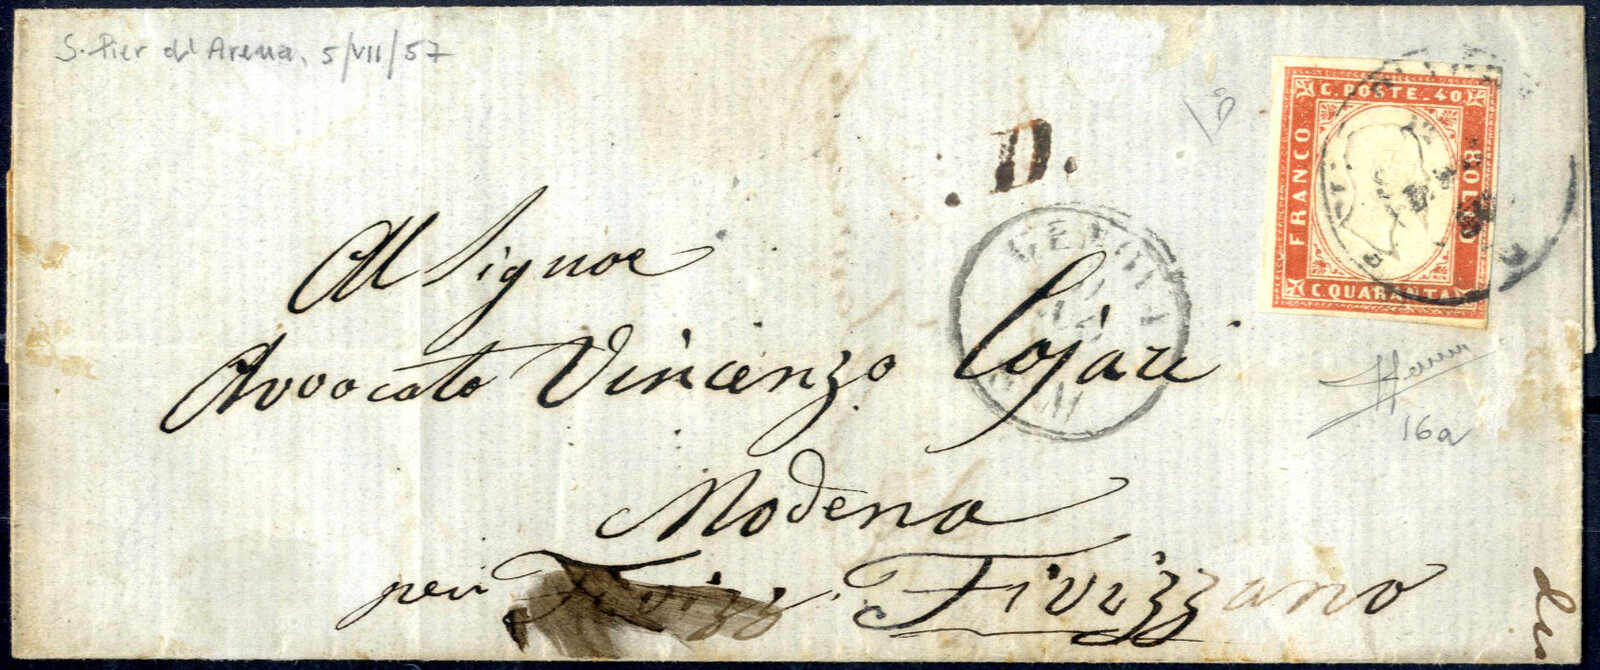 S. Pier d'Arena, 5/VII/57
C. POSTE. 40
FRANCO
C. QUARANTA
.D.
GENOVA
Al Signor
Avvocato Vincenzo Cojari
Modena
per Fivizz
Fivizzano
16a